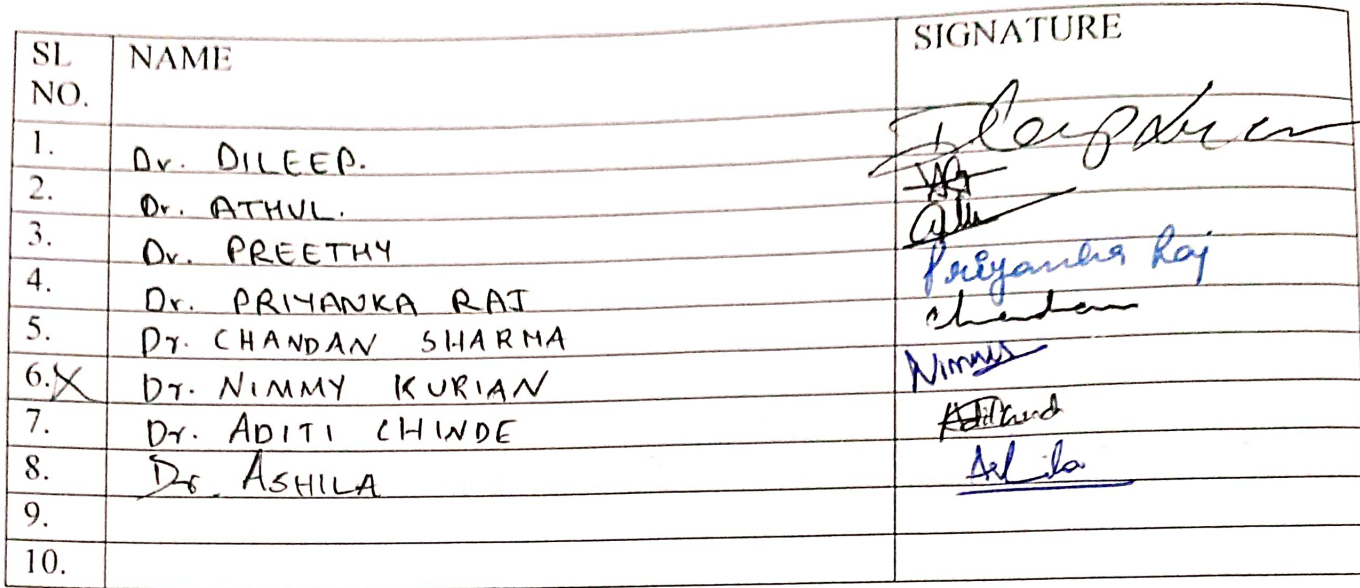 SL NO. NAME SIGNATURE
1. Dr. DILEEP.
2. Dr. ATHUL.
3. Dr. PREETHY
4. Dr. PRIYANKA RAJ Priyanka Raj
5. Dr. CHANDAN SHARMA Chandan
6. X Dr. NIMMY KURIAN Nimmy
7. Dr. ADITI CHINDE
8. Dr. ASHILA Ashila
9.
10.